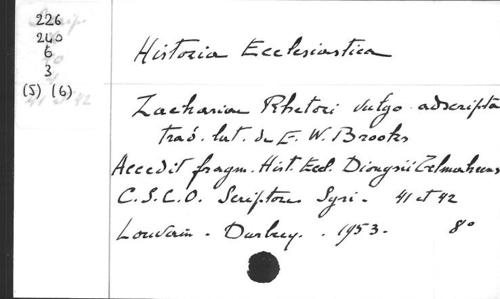 226
240
6
3
(5) (6)
Historia Ecclesiastica
Zachariae Rhetori vulgo adscripta
trad. lat. de E. W. Brooks
Accedit fragm. Hist. Eccl. Dionysii Telmahrens
C.S.C.O. Scriptores Syri - 41 et 42
Louvain - Durbecq. - 1953 - 8°